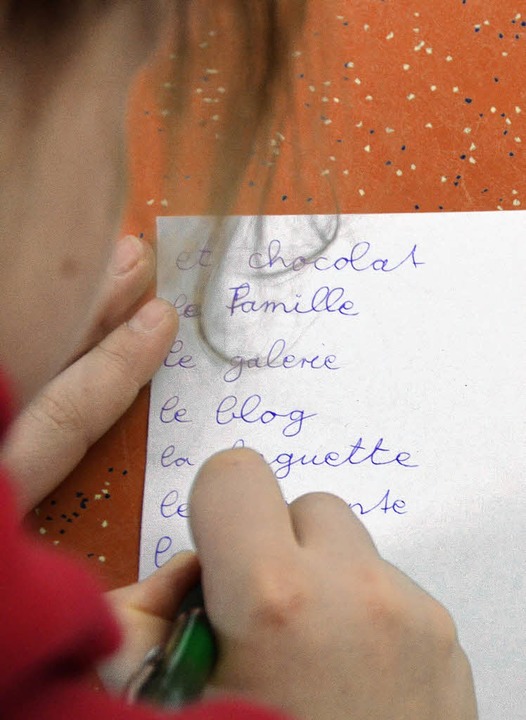 et chocolat
le Famille
le galerie
le blog
la guette
le nte